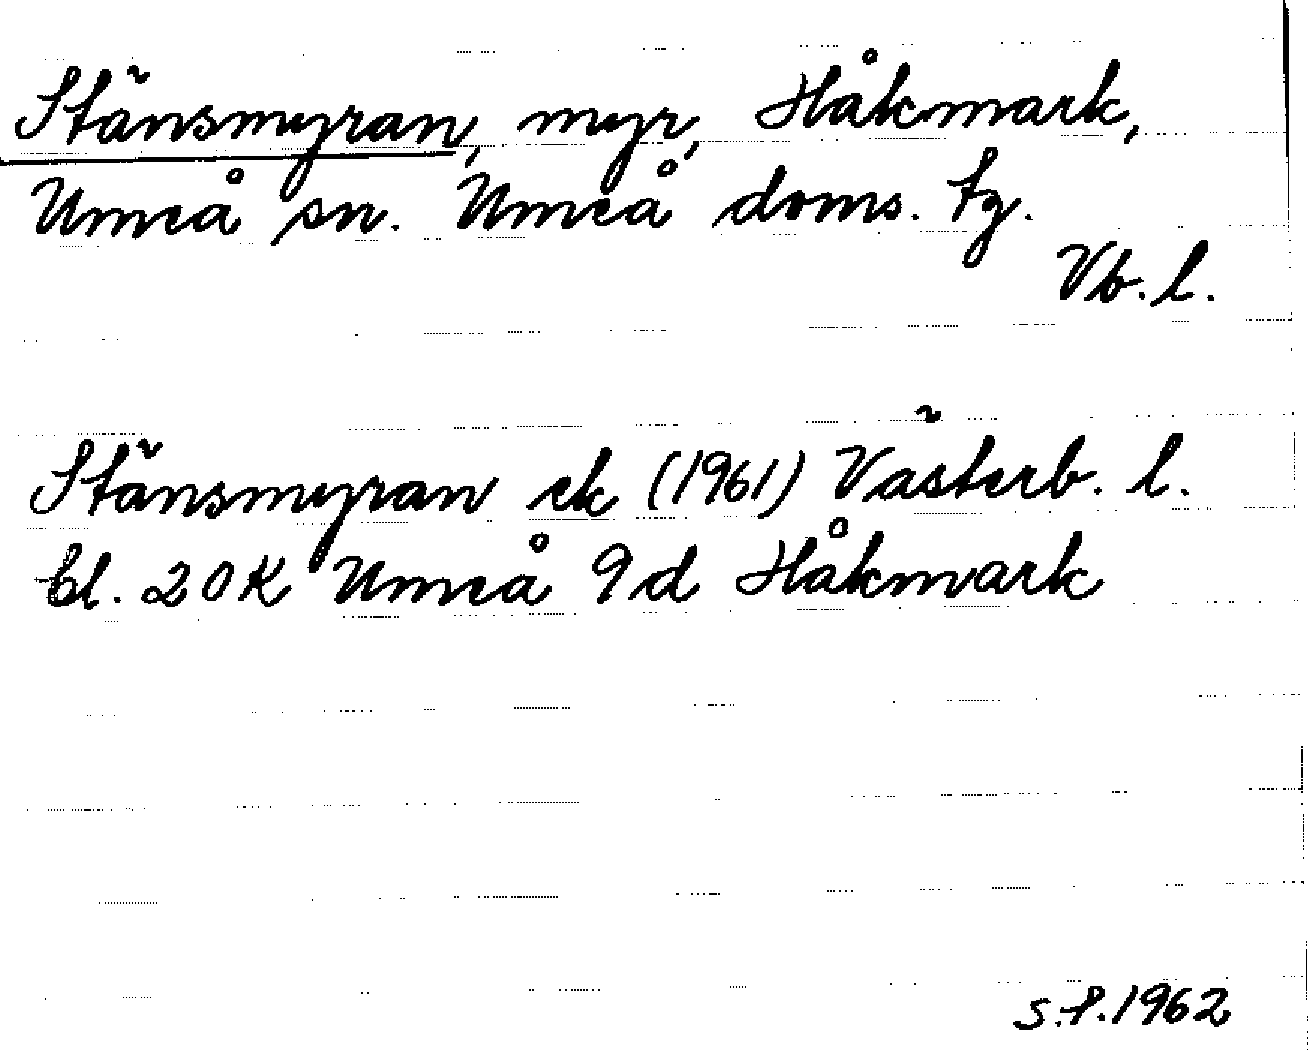 Stänsmyran, myr, Håkmark,
Umeå sn. Umeå doms. tg.
Vb. l.
Stänsmyran ek (1961) Västerb. l.
bl. 20K Umeå 9d Håkmark
S.P. 1962